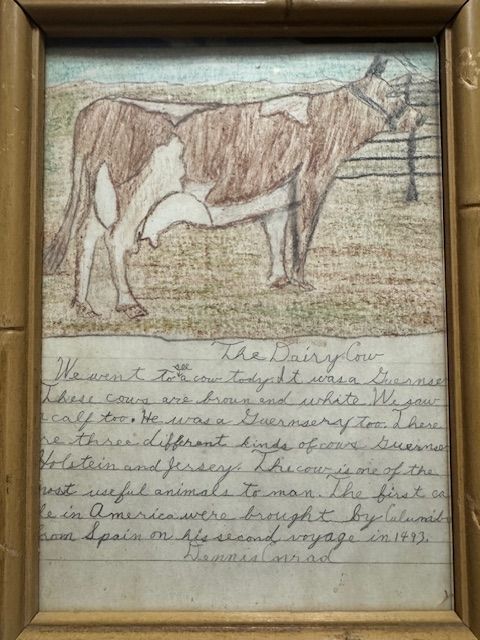 The Dairy Cow
We went to see a cow tody. It was a Guernse
These cows are broun and white. We saw
a calf too. He was a Guernsery too. There
re three different kinds of cows Guernse
Holstein and Jersey. The cow is one of the
most useful animals to man. The first ca
le in America were brought by Columb
rom Spain on his second voyage in 1493.
Dennis Conrad